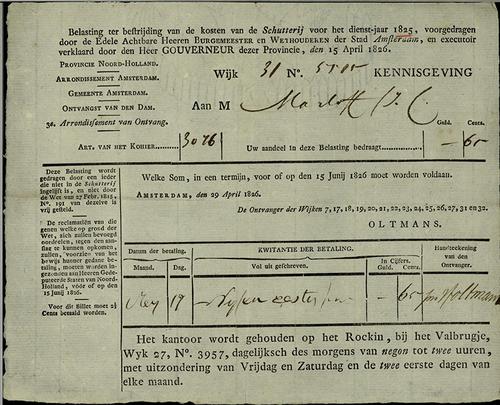 Belasting ter bestrijding van de kosten van de Schutterij voor het dienst-jaar 1825, voorgedragen
door de Edele Achtbare Heeren BURGEMEESTER en WETHOUDEREN der Stad Amsterdam, en executoir
verklaard door den Heer GOUVERNEUR dezer Provincie, den 15 April 1826.
PROVINCIE NOORD-HOLLAND.
ARRONDISSEMENT AMSTERDAM.
GEMEENTE AMSTERDAM.
ONTVANGST VAN DEN DAM.
3e. Arrondissement van Ontvang.
Wijk 31 No. KENNISGEVING
Aan M
Guld. Cents.
ART. VAN HET KOHIER 3076 Uw aandeel in deze Belasting bedraagt — 60
Deze Belasting wordt
gedragen door een ieder
die niet in de Schutterij
ingelijft is, en niet door
de Wet van 27 Febr. 1815,
No. 191 van dezelve is
vrij gesteld.
De reclamatiën van die
genen welke op grond der
Wet, zich zullen bevoegd
oordeelen, tegen den aan-
slag te kunnen opkomen,
zullen, voorzien van het
bewijs hunner gedane be-
taling, moeten worden in-
gezonden aan Heeren Gede-
puteerde Staten van Noord-
Holland, vóór of op den
15 Junij 1826.
Voor dit Billet moet 2½
Cents betaald worden.
Welke Som, in een termijn, voor of op den 15 Junij 1826 moet worden voldaan.
AMSTERDAM, den 29 April 1826.
De Ontvanger der Wijken 7, 17, 18, 19, 20, 21, 22, 23, 24, 25, 26, 27, 31 en 32.
OLTMANS.
Datum der betaling. KWITANTIE DER BETALING. Handteekening
van den
Ontvanger.
Maand. Dag. Vol uit geschreven. In Cijfers.
Guld. Cents.
Mey 19 — 60 Oltmans
Het kantoor wordt gehouden op het Rockin, bij het Valbrugje,
Wyk 27, No. 3957, dagelijksch des morgens van negen tot twee uuren,
met uitzondering van Vrijdag en Zaturdag en de twee eerste dagen van
elke maand.